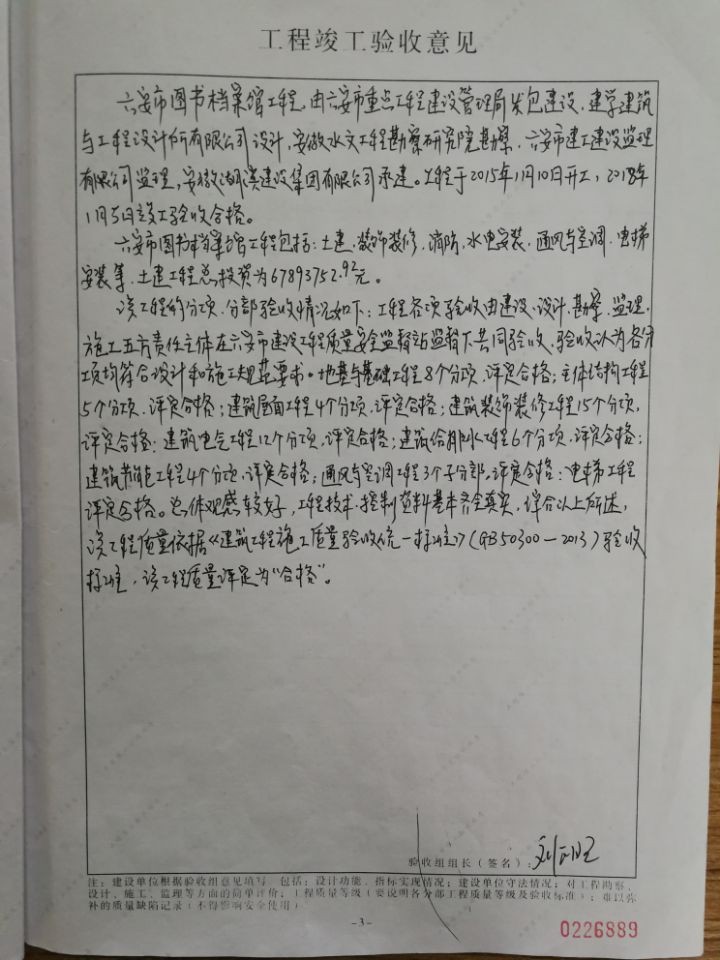 工程竣工验收意见
六安市图书档案馆工程，由六安市重点工程建设管理局发包建设，建学建筑
与工程设计所有限公司设计，安徽水文工程勘察研究院勘察，六安市建工建设监理
有限公司监理，安徽湖滨建设集团有限公司承建。工程于2015年1月10日开工，2018年
1月5日竣工验收合格。
六安市图书档案馆工程包括：土建、装饰装修、消防、水电安装、通风与空调、电梯
安装等，土建工程总投资为67893752.92元。
该工程的分项、分部验收情况如下：工程各项验收由建设、设计、勘察、监理、
施工五方责任主体在六安市建设工程质量安全监督站监督下共同验收，验收认为各分
项均符合设计和施工规范要求。地基与基础工程8个分项，评定合格；主体结构工程
5个分项，评定合格；建筑屋面工程4个分项，评定合格；建筑装饰装修工程15个分项，
评定合格；建筑电气工程12个分项，评定合格；建筑给排水工程6个分项，评定合格；
建筑节能工程4个分项，评定合格；通风与空调工程3个子分部，评定合格；电梯工程
评定合格。总体观感较好，工程技术、控制资料基本齐全真实，综合以上所述，
该工程质量依据《建筑工程施工质量验收统一标准》（GB50300—2013）验收
标准，该工程质量评定为“合格”。
验收组组长（签名）：
注：建设单位根据验收组意见填写。包括：设计功能、指标实现情况；建设单位守法情况；对工程勘察、
设计、施工、监理等方面的简单评价；工程质量等级（要说明各分部工程质量等级及验收标准）；难以弥
补的质量缺陷记录（不得影响安全使用）
-3-
0226889